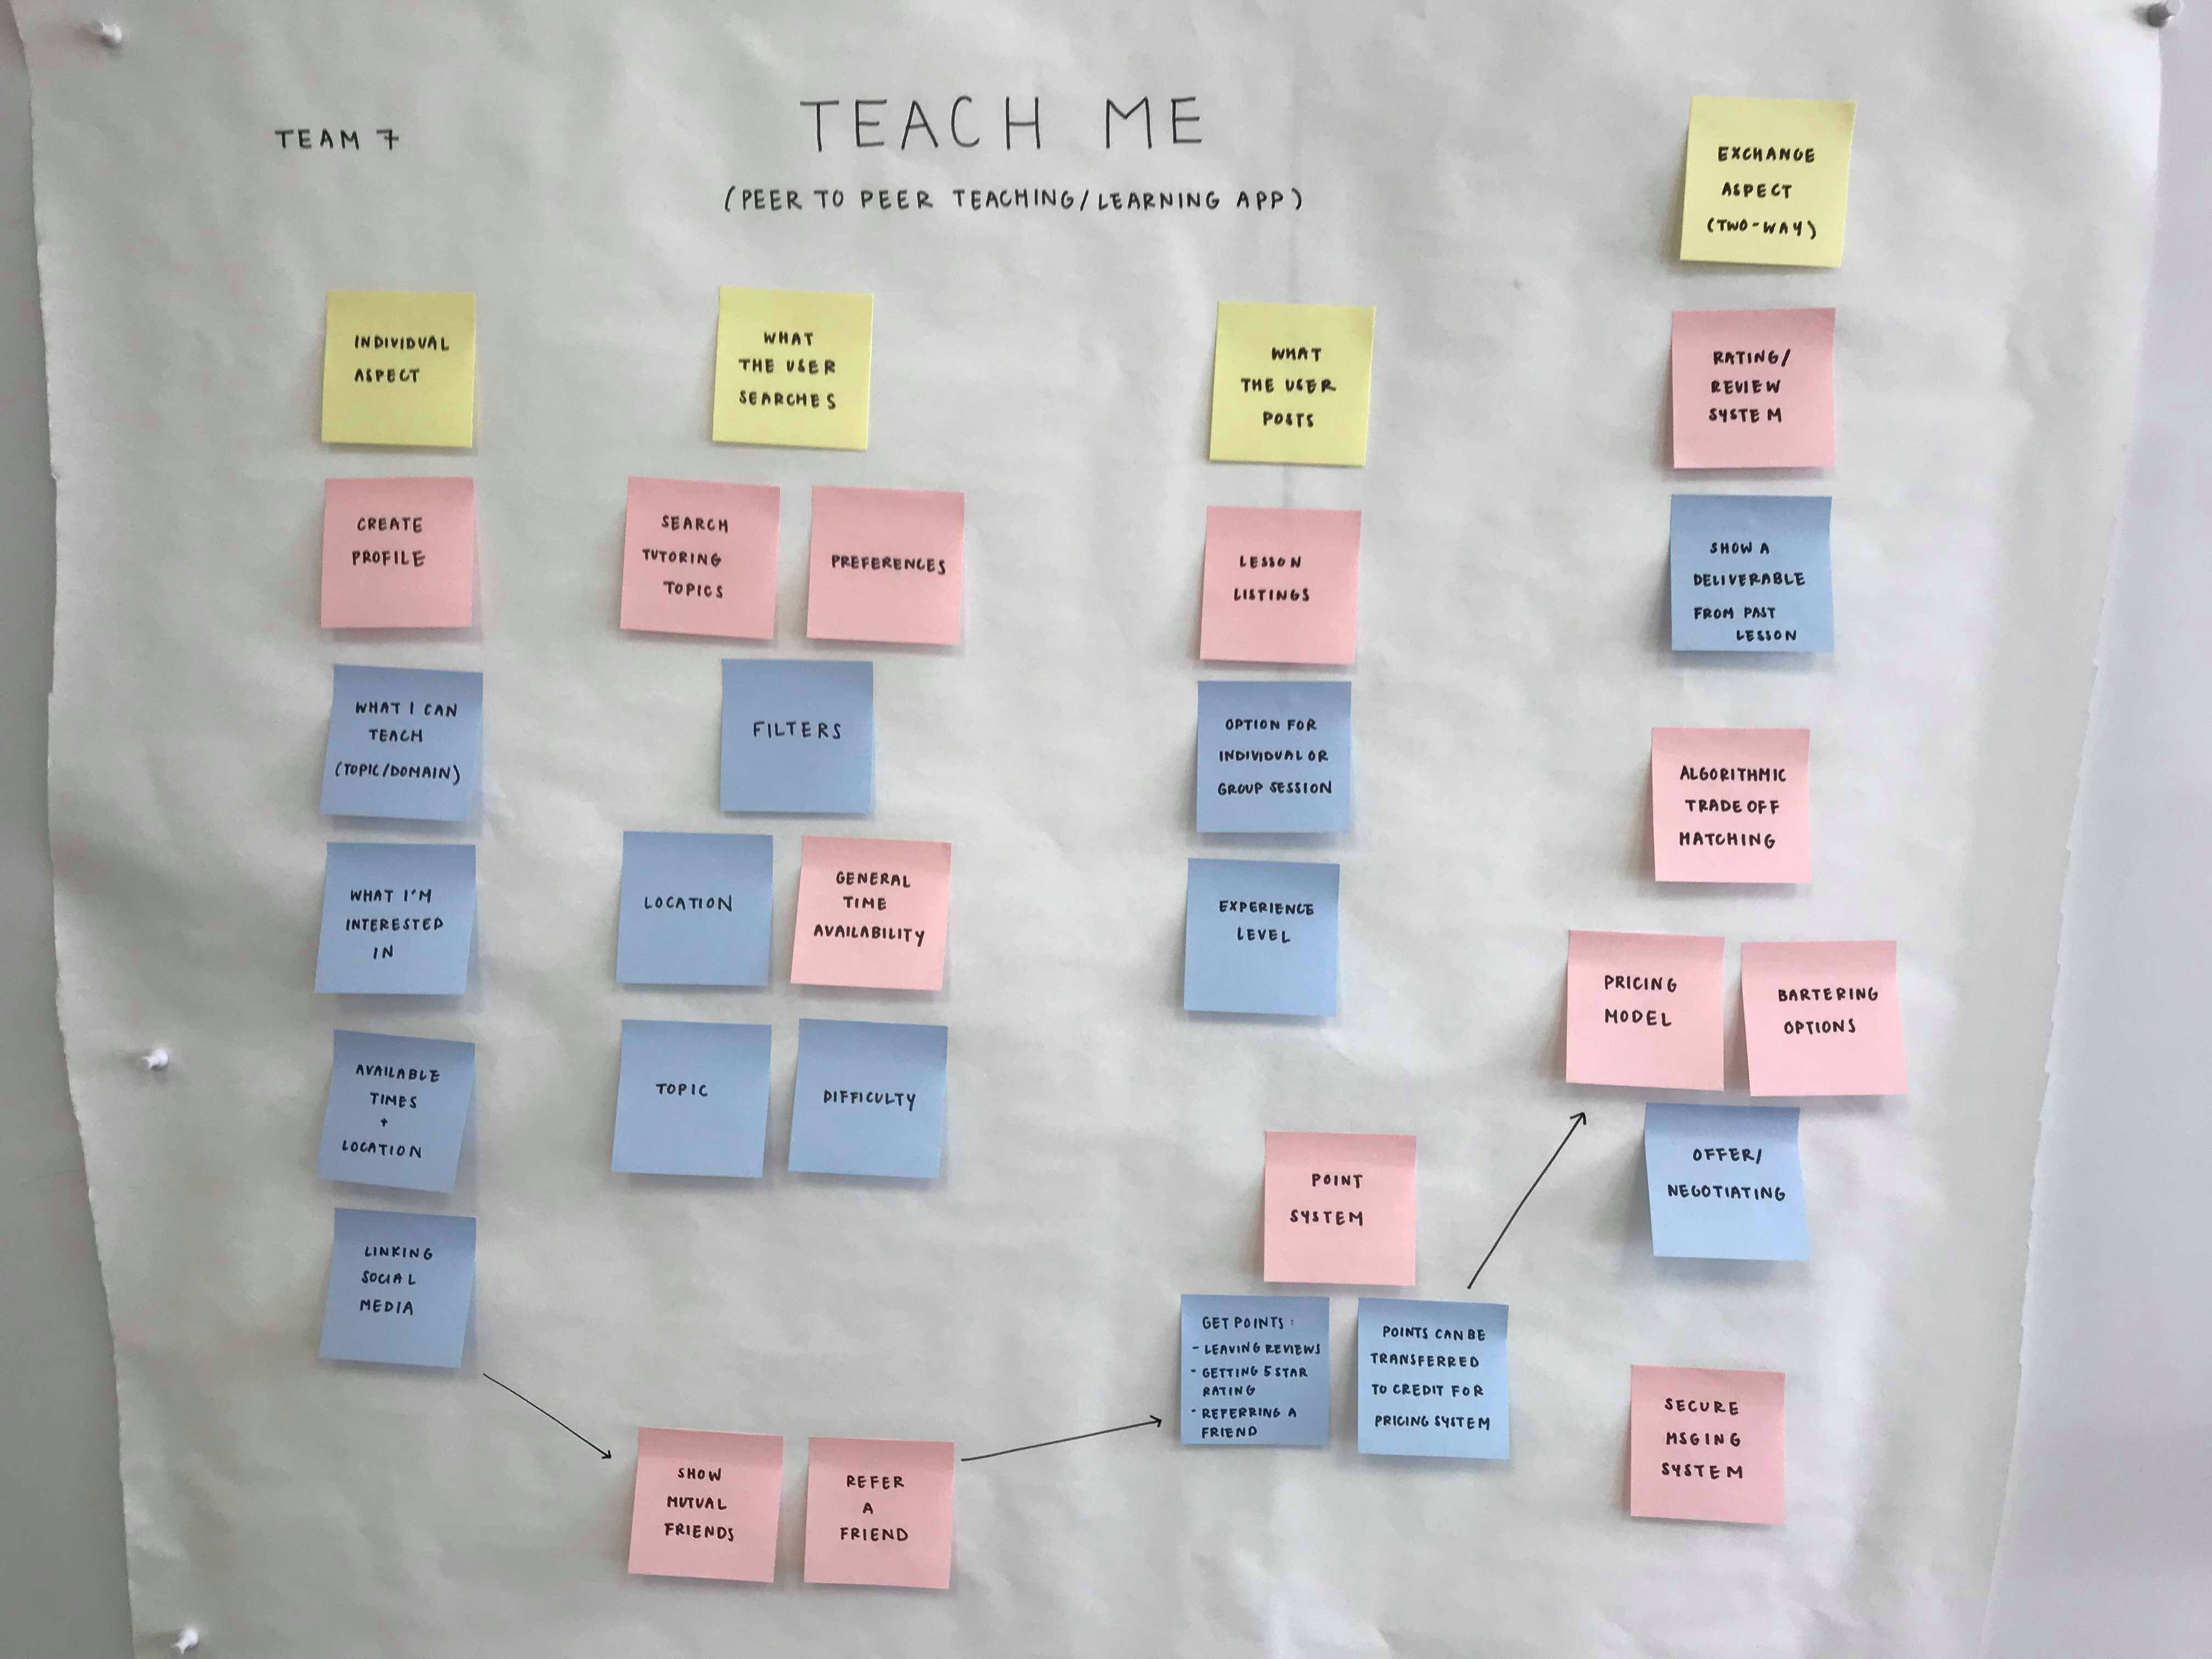 TEAM 7
TEACH ME
(PEER TO PEER TEACHING/LEARNING APP)
INDIVIDUAL
ASPECT
CREATE
PROFILE
WHAT I CAN
TEACH
(TOPIC/DOMAIN)
WHAT I'M
INTERESTED
IN
AVAILABLE
TIMES
+
LOCATION
LINKING
SOCIAL
MEDIA
WHAT
THE USER
SEARCHES
SEARCH
TUTORING
TOPICS
PREFERENCES
FILTERS
LOCATION
GENERAL
TIME
AVAILABILITY
TOPIC
DIFFICULTY
SHOW
MUTUAL
FRIENDS
REFER
A
FRIEND
WHAT
THE USER
POSTS
LESSON
LISTINGS
OPTION FOR
INDIVIDUAL OR
GROUP SESSION
EXPERIENCE
LEVEL
POINT
SYSTEM
GET POINTS:
- LEAVING REVIEWS
- GETTING 5 STAR
RATING
- REFERRING A
FRIEND
POINTS CAN BE
TRANSFERRED
TO CREDIT FOR
PRICING SYSTEM
EXCHANGE
ASPECT
(TWO-WAY)
RATING/
REVIEW
SYSTEM
SHOW A
DELIVERABLE
FROM PAST
LESSON
ALGORITHMIC
TRADE OFF
MATCHING
PRICING
MODEL
BARTERING
OPTIONS
OFFER/
NEGOTIATING
SECURE
MSGING
SYSTEM